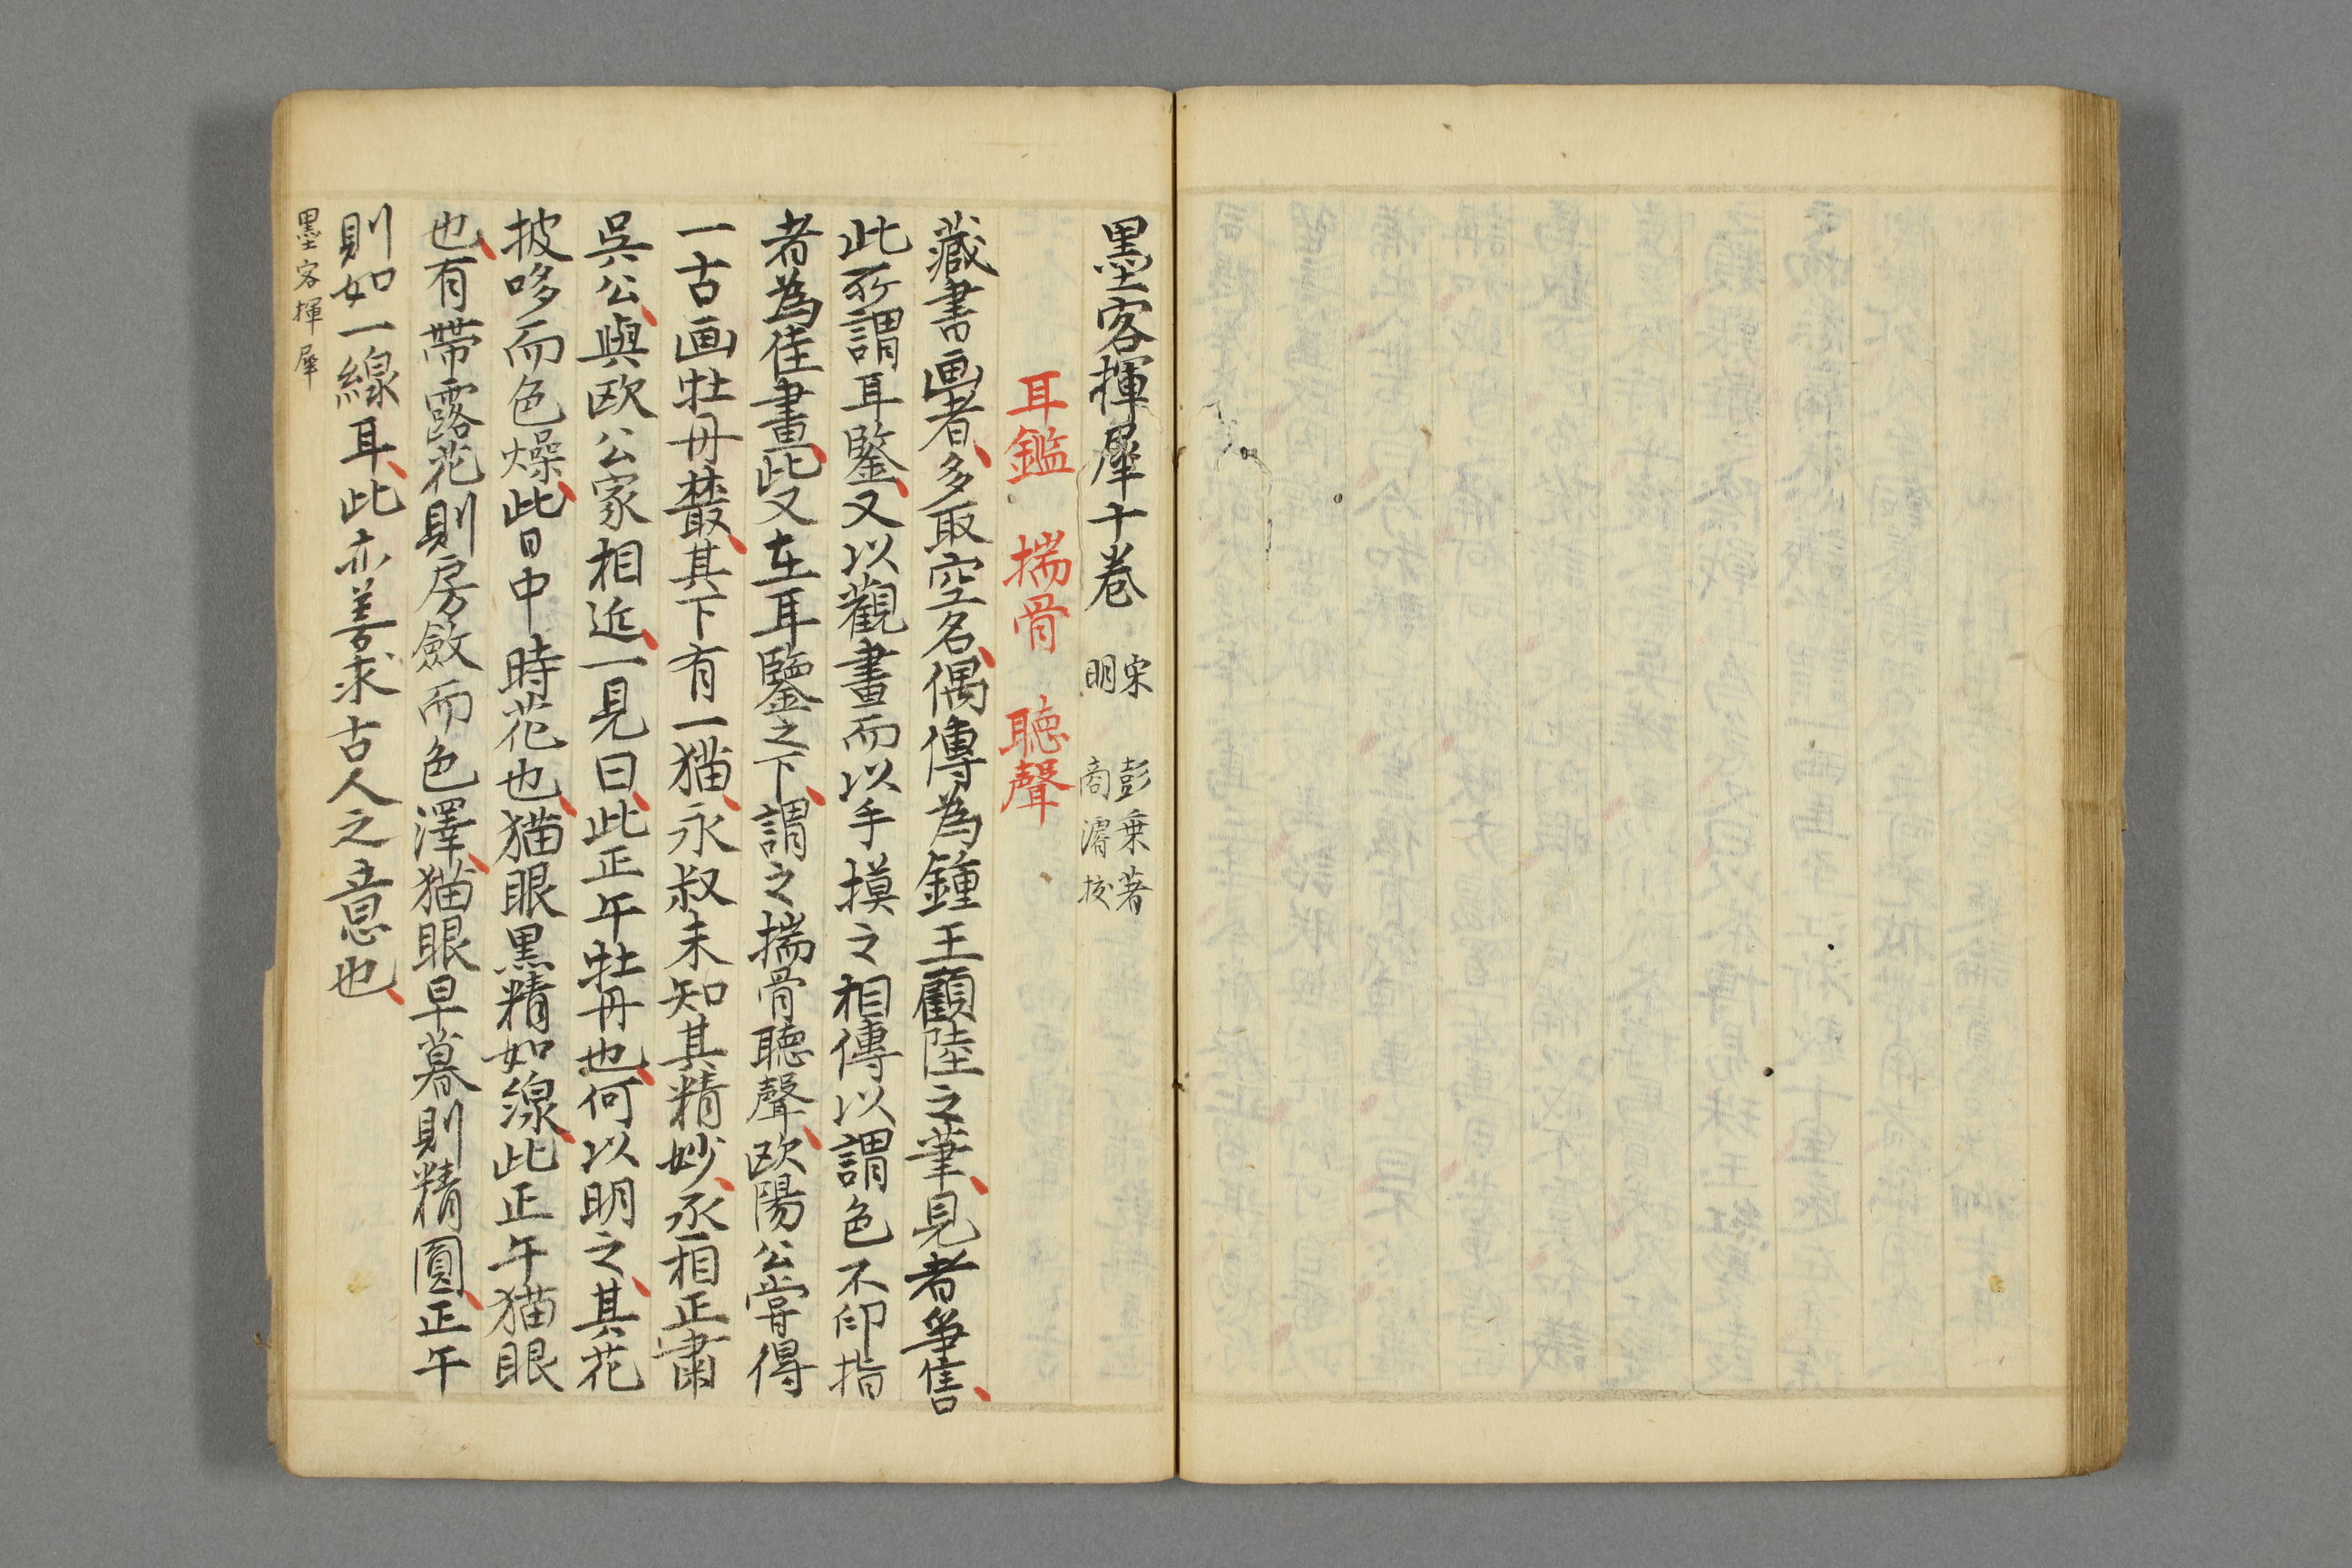 墨客揮犀十卷 宋 彭乗著
明 商濬挍
耳鑑 揣骨 聴聲
藏書画者多取空名偶傳為鍾王顧陸之筆見者爭售
此所謂耳鑒又以觀畫而以手摸之相傳以謂色不印指
者為佳畫此又在耳鑒之下謂之揣骨聴聲欧陽公嘗得
一古画牡丹叢其下有一猫永叔未知其精妙丞相正肅
呉公與欧公家相近一見曰此正午牡丹也何以明之其花
披哆而色燥此日中時花也猫眼黒精如線此正午猫眼
也有帶露花則房斂而色澤猫眼早暮則精圓正午
則如一線耳此亦善求古人之意也
墨客揮犀